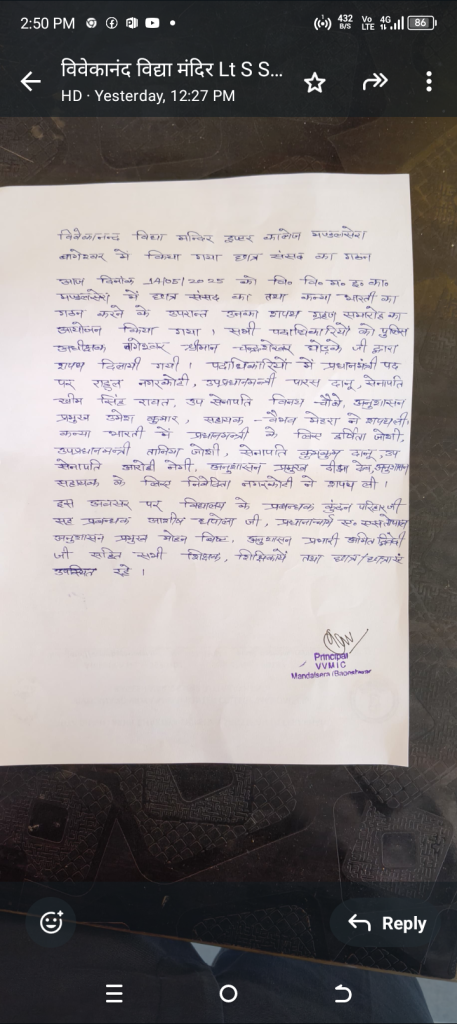 2:50 PM
432 B/S
Vo LTE
4G
86
विवेकानंद विद्या मंदिर Lt S S...
HD · Yesterday, 12:27 PM
विवेकानन्द विद्या मन्दिर इण्टर कालेज मण्डलसेरा
बागेश्वर में किया गया छात्र संसद का गठन
आज दिनांक 14/05/2025 को वि० वि० म० इ० का०
मण्डलसेरा में छात्र संसद का तथा कन्या भारती का
गठन करने के उपरान्त उनका शपथ ग्रहण समारोह का
आयोजन किया गया । सभी पदाधिकारियों को पुलिस
अधीक्षक बागेश्वर श्रीमान चन्द्रशेखर घोड़के जी द्वारा
शपथ दिलायी गयी । पदाधिकारियों में प्रधानमंत्री पद
पर राहुल नगरकोटी, उपप्रधानमन्त्री पारस दानू, सेनापति
खीम सिंह रावत, उप सेनापति विनय चौबे, अनुशासन
प्रमुख उमेश कुमार, सहायक - वैभव मेहरा ने शपथ ली,
कन्या भारती में प्रधानमन्त्री के लिए हर्षिता जोशी,
उपप्रधानमन्त्री तानिया जोशी, सेनापति कुमकुम दानू, उप
सेनापति आरोही नेगी, अनुशासन प्रमुख दीक्षा देव, अनुशासन
सहायक के लिए निवेदिता नगरकोटी ने शपथ ली ।
इस अवसर पर विद्यालय के प्रबन्धक कुंदन परिहार जी
सह प्रबन्धक आशीष धपोला जी, प्रधानाचार्य
अनुशासन प्रमुख मोहन बिष्ट, अनुशासन प्रभारी अमित द्विवेदी
जी सहित सभी शिक्षक, शिक्षिकायें तथा छात्र/छात्राएं
उपस्थित रहे ।
Principal
VVMIC
Mandalsera (Bageshwar)
Reply